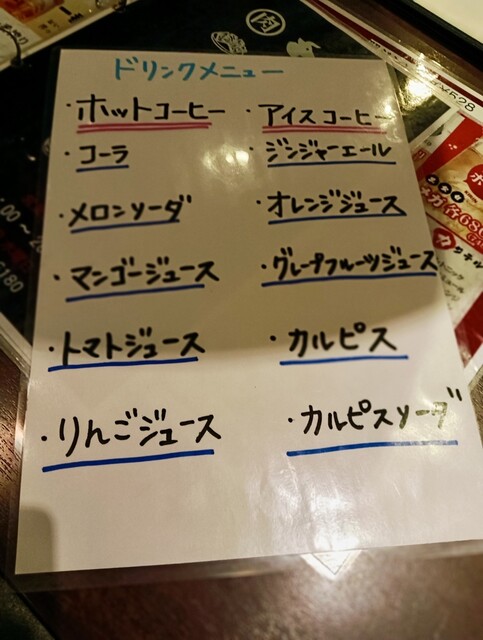 肉
ドリンクメニュー
・ホットコーヒー ・アイスコーヒー
・コーラ ・ジンジャーエール
・メロンソーダ ・オレンジジュース
・マンゴージュース ・グレープフルーツジュース
・トマトジュース ・カルピス
・りんごジュース ・カルピスソーダ
¥528